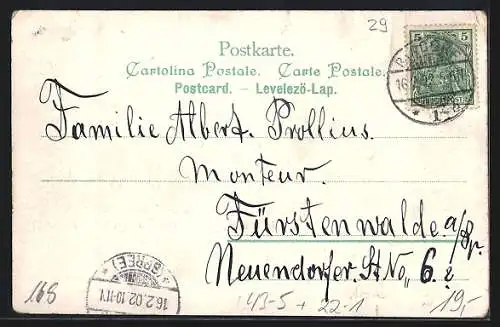 29
Postkarte.
Cartolina Postale. Carte Postale.
Postcard. – Levelező-Lap.
5 5
16.
Familie Albert Prollius.
Monteur.
Fürstenwalde a/Spr.
Neuendorfer St No 6.
(SPREE)
16.2.02.10-11V.
168
43-5 + 22-1
19,-